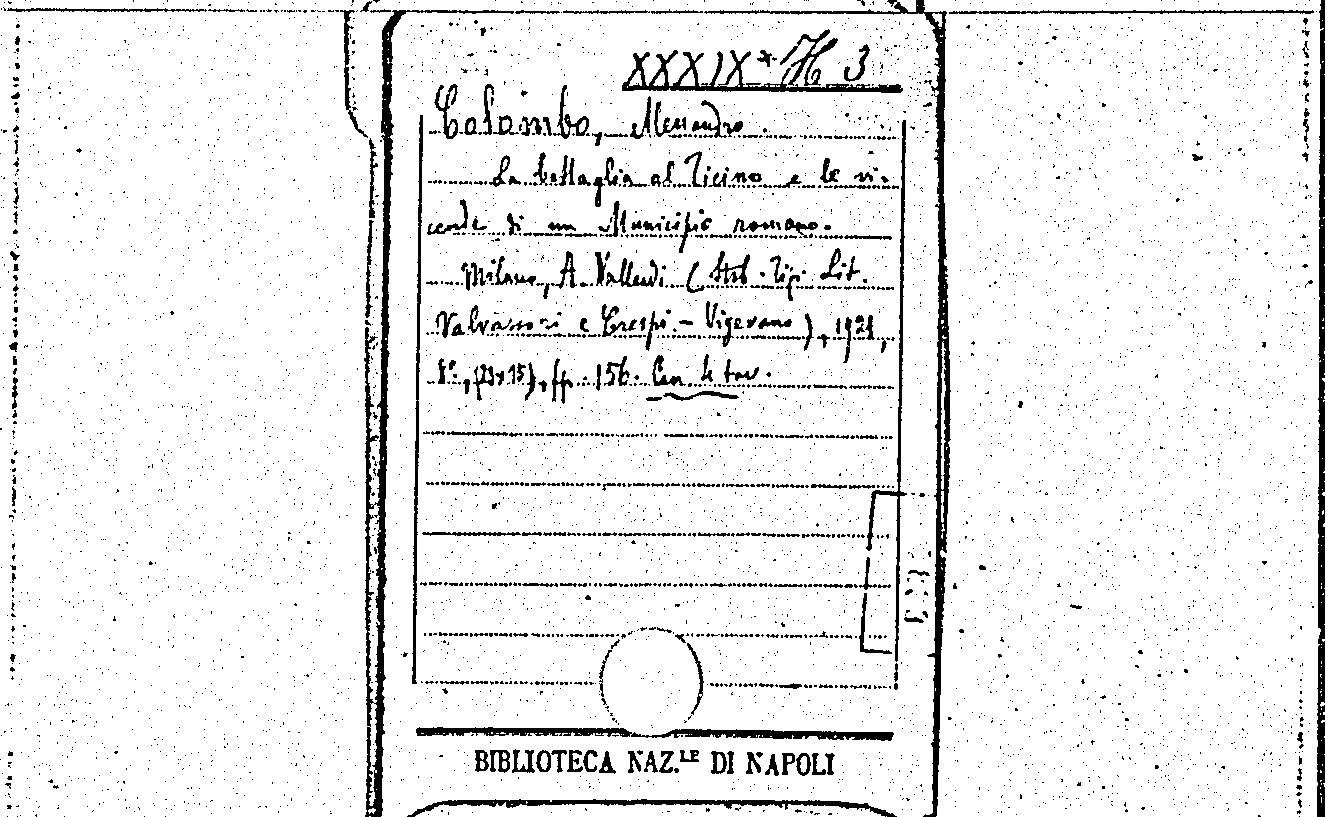 XXXIX* H 3
Colombo, Alessandro.
La battaglia al Ticino e le vi-
cende di un Municipio romano.
Milano, A. Vallardi (Stab. Tip. Lit.
Valvassori e Crespi - Vigevano), 1921,
8°, (23x15), pp. 156. Con 4 tav.
BIBLIOTECA NAZ.LE DI NAPOLI